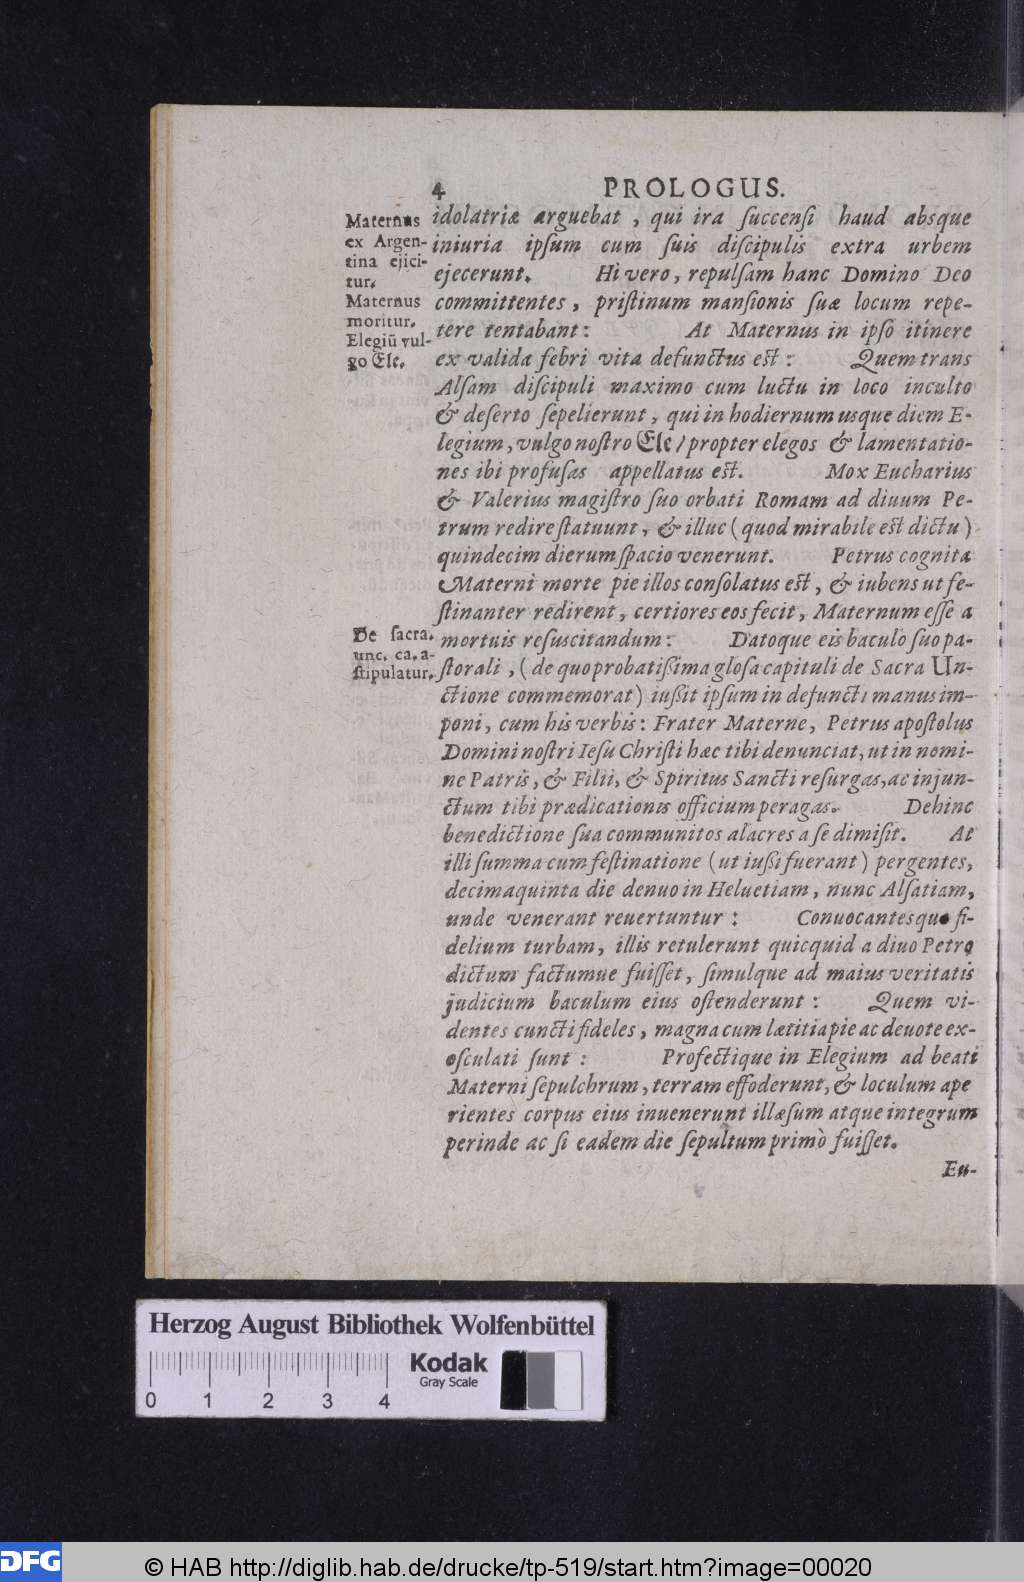 4 PROLOGUS.
Maternus
ex Argen-
tina ejici-
tur.
Maternus
moritur.
Elegiū vul-
go Ele.
idolatriæ arguebat, qui ira ſuccenſi haud absque
iniuria ipſum cum ſuis diſcipulis extra urbem
ejecerunt. Hi vero, repulſam hanc Domino Deo
committentes, priſtinum manſionis ſuæ locum repe-
tere tentabant: At Maternus in ipſo itinere
ex valida febri vita defunctus est: Quem trans
Alſam diſcipuli maximo cum luctu in loco inculto
& deſerto ſepelierunt, qui in hodiernum usque diem E-
legium, vulgo noſtro Ele / propter elegos & lamentatio-
nes ibi profuſas appellatus est. Mox Eucharius
& Valerius magiſtro ſuo orbati Romam ad diuum Pe-
trum redire ſtatuunt, & illuc (quod mirabile est dictu)
quindecim dierum ſpacio venerunt. Petrus cognita
Materni morte pie illos conſolatus est, & iubens ut fe-
ſtinanter redirent, certiores eos fecit, Maternum eſſe a
De ſacra.
unc. ca. a-
ſtipulatur.
mortuis reſuscitandum: Datoque eis baculo ſuo pa-
ſtorali, (de quo probatiſſima gloſa capituli de Sacra Un-
ctione commemorat) iuſſit ipſum in defuncti manus im-
poni, cum his verbis: Frater Materne, Petrus apoſtolus
Domini noſtri Ieſu Chriſti hæc tibi denunciat, ut in nomi-
ne Patris, & Filii, & Spiritus Sancti reſurgas, ac injun-
ctum tibi prædicationis officium peragas. Dehinc
benedictione ſua communitos alacres a ſe dimiſit. At
illi ſumma cum feſtinatione (ut iuſſi fuerant) pergentes,
decimaquinta die denuo in Heluetiam, nunc Alſatiam,
unde venerant reuertuntur: Conuocantesque fi-
delium turbam, illis retulerunt quicquid a diuo Petro
dictum factumue fuiſſet, ſimulque ad maius veritatis
judicium baculum eius oſtenderunt: Quem vi-
dentes cuncti fideles, magna cum lætitia pie ac deuote ex-
oſculati ſunt: Profectique in Elegium ad beati
Materni ſepulchrum, terram effoderunt, & loculum ape
rientes corpus eius inuenerunt illæſum atque integrum
perinde ac ſi eadem die ſepultum primò fuiſſet.
Eu-
Herzog August Bibliothek Wolfenbüttel
Kodak
Gray Scale
0 1 2 3 4
DFG
© HAB http://diglib.hab.de/drucke/tp-519/start.htm?image=00020